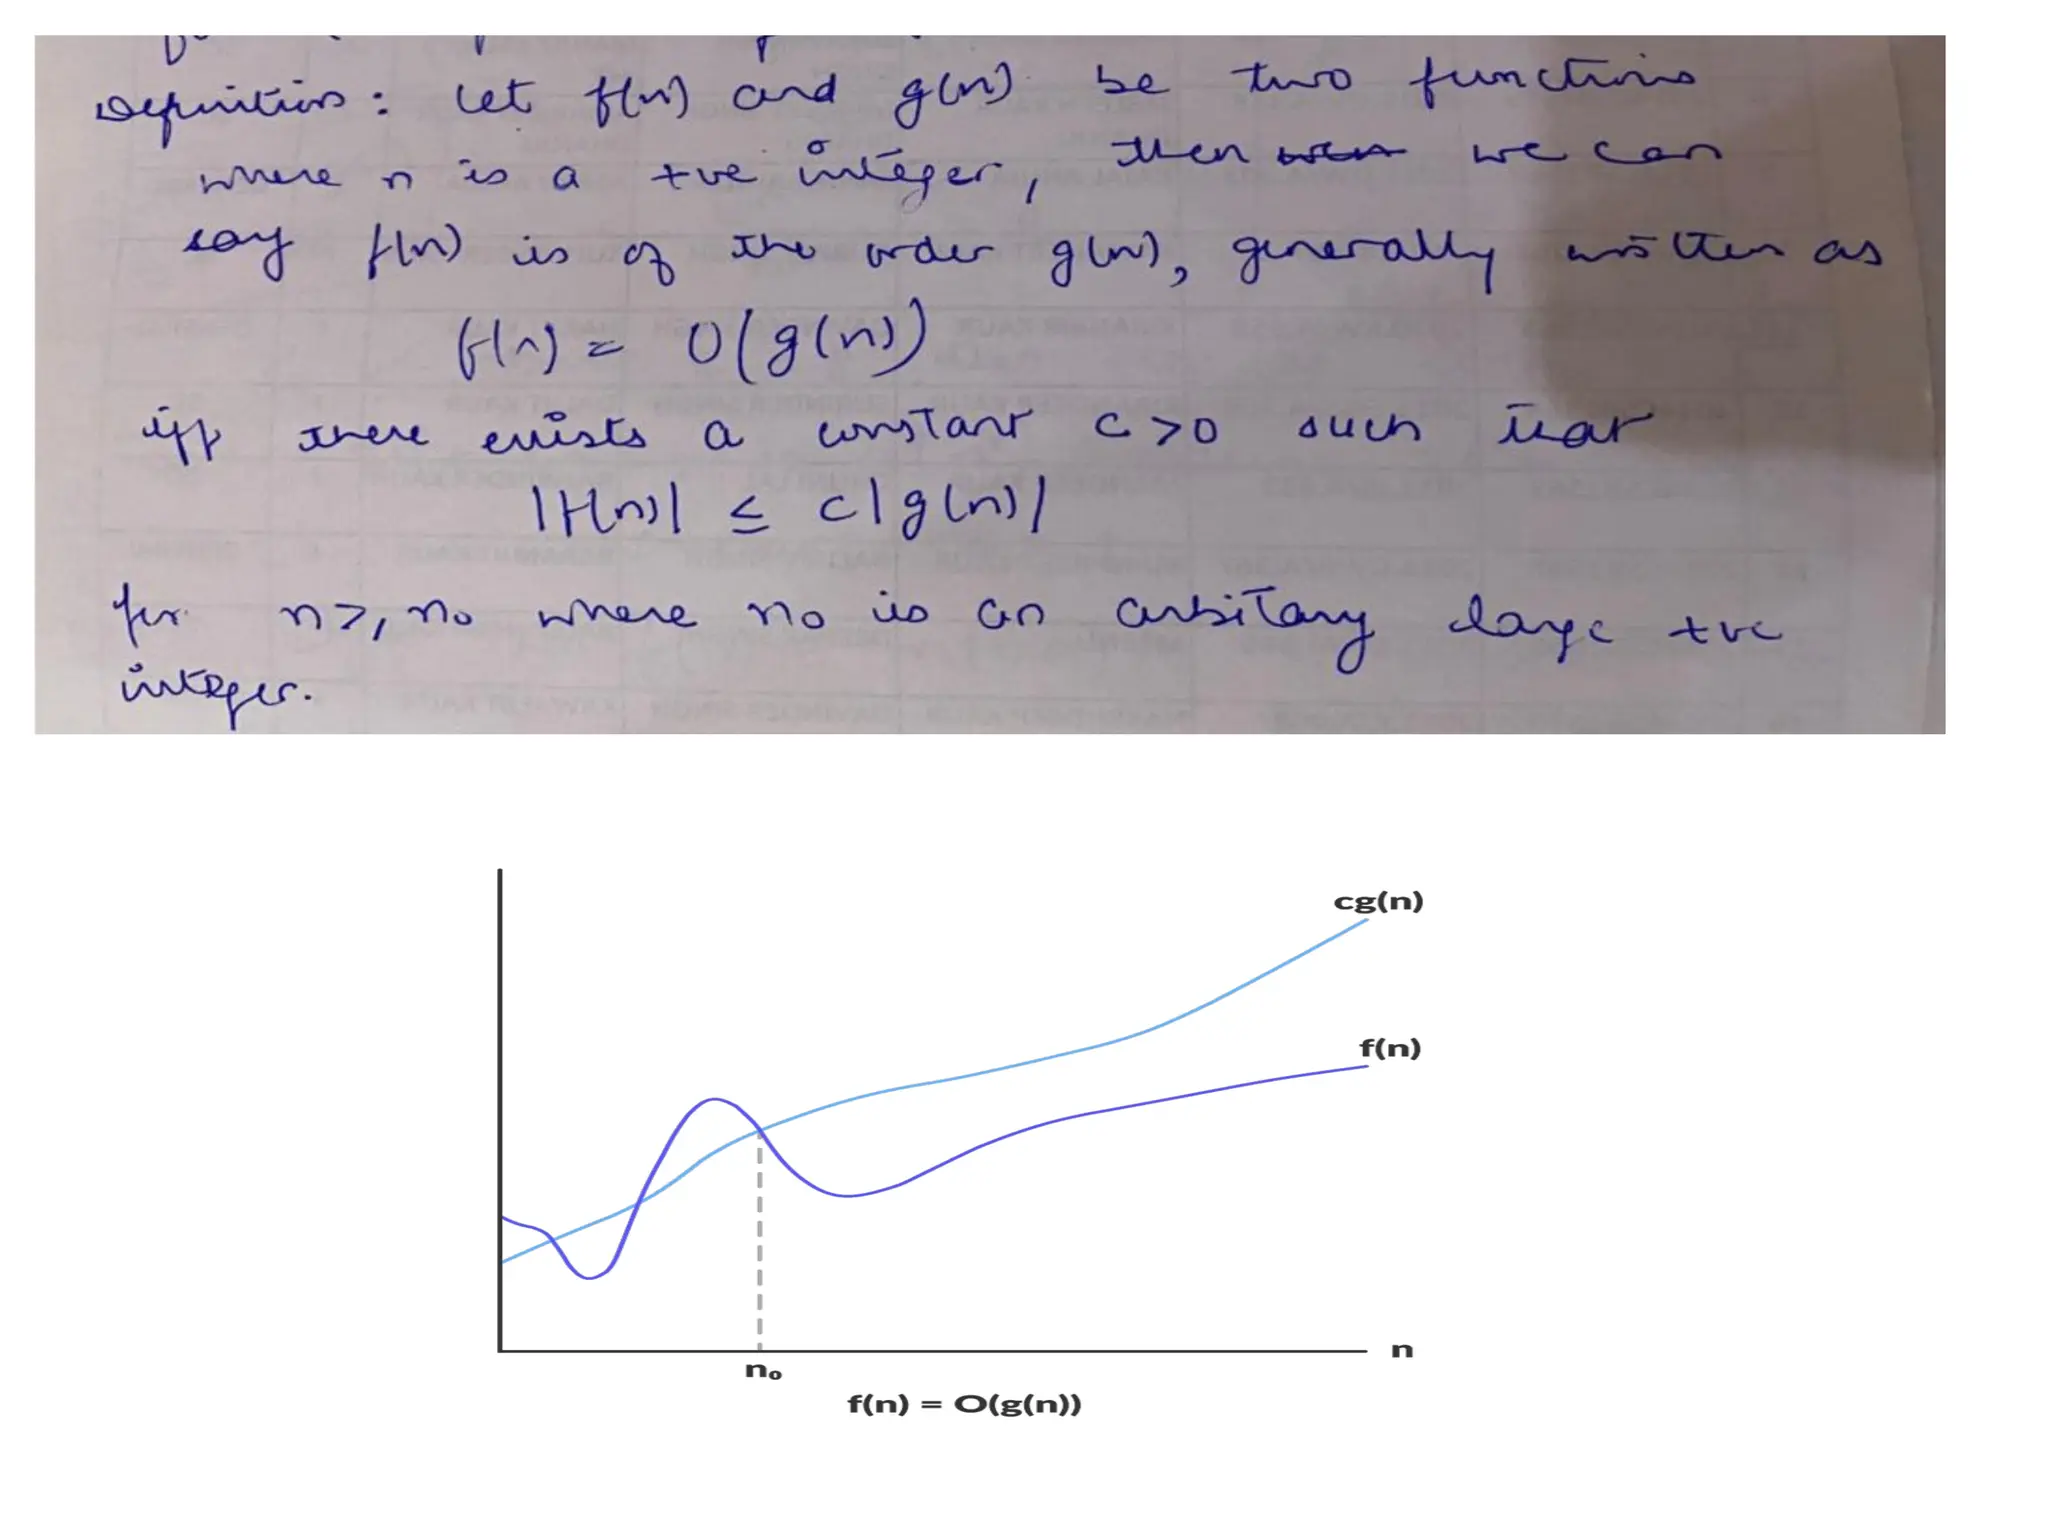 Definition: Let f(n) and g(n) be two functions
where n is a +ve integer, then we can
say f(n) is of the order g(n), generally written as
f(n) = O(g(n))
iff there exists a constant c>0 such that
|f(n)| ≤ c|g(n)|
for n ≥ n₀ where n₀ is an arbitary large +ve
integer.
cg(n)
f(n)
n
n₀
f(n) = O(g(n))